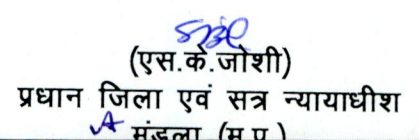 (एस.के.जोशी)
प्रधान जिला एवं सत्र न्यायाधीश
मंडला (म.प्र.)